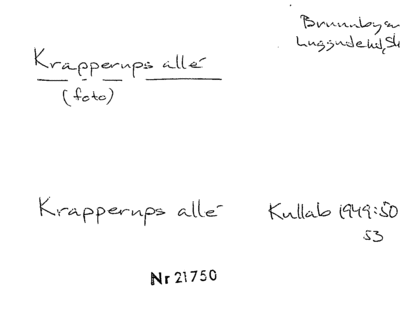 Brunnby
Luggude hd, Sk
Krapperups allé
(foto)
Krapperups allé
Kullab 1949:50
53
Nr 21750